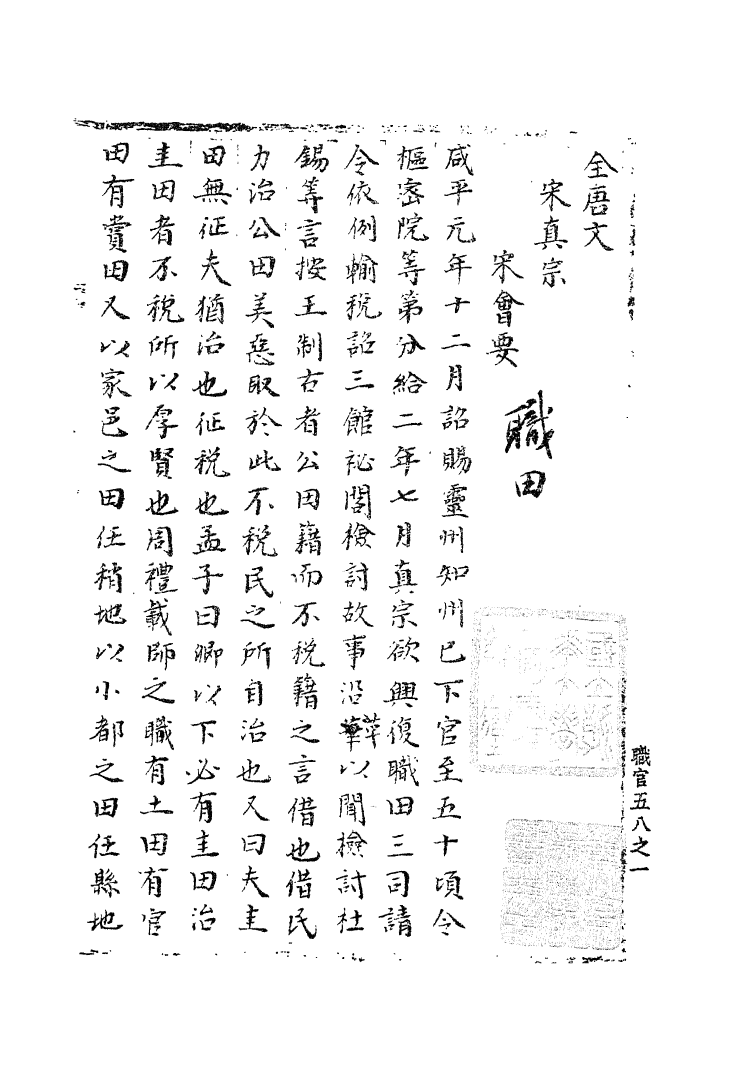 全唐文
宋真宗
宋會要
職田
咸平元年十二月詔賜靈州知州已下官至五十頃令
樞密院等第分給二年七月真宗欲興復職田三司請
令依例輸稅詔三館祕閣檢討故事沿革以聞檢討杜
錫等言按王制古者公田藉而不稅籍之言借也借民
力治公田美惡取於此不稅民之所自治也又曰夫圭
田無征夫猶治也征稅也孟子曰卿以下必有圭田治
圭田者不稅所以厚賢也周禮載師之職有土田有官
田有賞田又以家邑之田任稍地以小都之田任縣地
職官五八之一